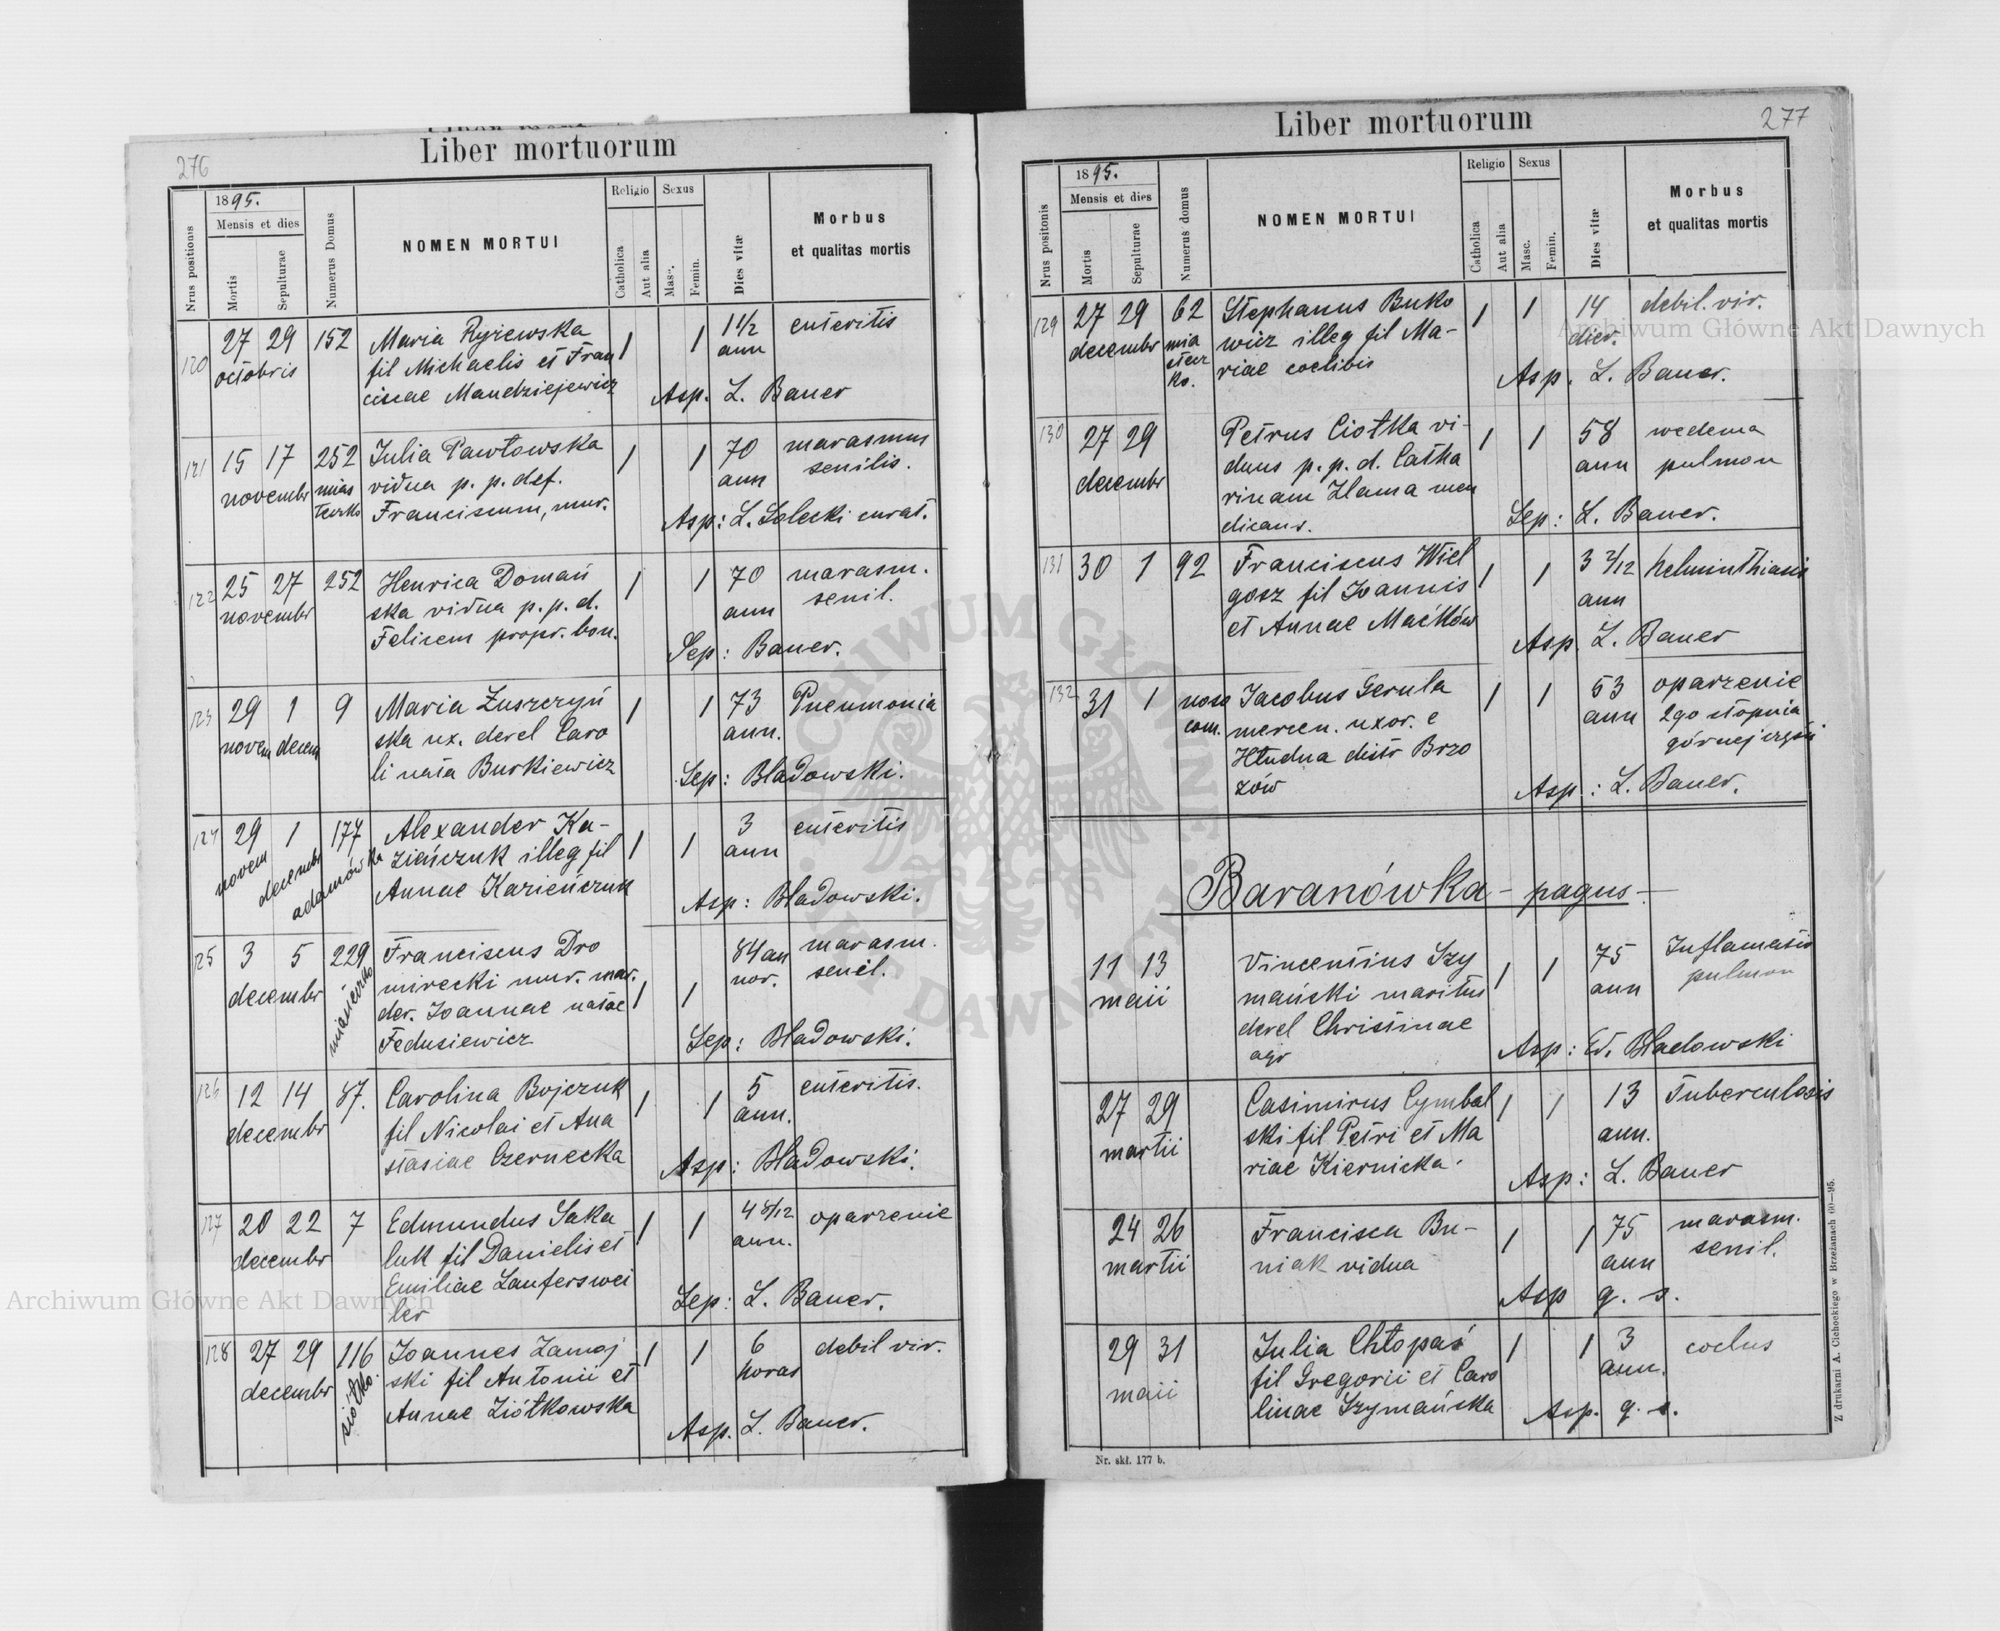 276
Liber mortuorum
Nrus positionis
1895.
Mensis et dies
Mortis
Sepulturae
Numerus Domus
NOMEN MORTUI
Religio
Catholica
Aut alia
Sexus
Mas.
Femin.
Dies vitæ
Morbus
et qualitas mortis
120 27 29 152 Maria Ryżewska 1 1 1 1/2 enteritis
octobris fil Michaelis et Fran ann
ciscae Mandziejewicz Asp. L. Bauer
121 15 17 252 Julia Pawłowska 1 1 70 marasmus
novembr mias vidua p. p. def. ann senilis.
teczko Franciscum, mur. Asp: L. Solecki curat.
122 25 27 252 Henrica Domań 1 1 70 marasm.
novembr ska vidua p. p. d. ann senil.
Felicem propr. bon. Sep: Bauer.
123 29 1 9 Maria Zuszczyń 1 1 73 Pneumonia
novem decem ska ux. derel Caro ann.
li nata Burkiewicz Sep: Bladowski.
124 29 1 177 Alexander Ka- 1 1 3 enteritis
novem decembr adamówka zieńczuk illeg fil ann
Annae Kazieńczuk Asp: Bladowski.
125 3 5 229 Franciscus Dro 84 an marasm.
decembr miasteczko mirecki mur. mar. 1 1 nor. senil.
der. Joannae natae
Fedusiewicz Sep: Bladowski.
126 12 14 87. Carolina Bojczuk 1 1 5 enteritis.
decembr fil Nicolai et Ana ann.
stasiae Czernecka Asp: Bladowski.
127 20 22 7 Edmundus Saka 1 1 4 8/12 oparzenie
decembr luk fil Danielis et ann.
Emiliae Lauferswei
ler Sep: L. Bauer.
128 27 29 116 Joannes Zamoj 1 1 6 debil vir.
decembr siółko. ski fil Antonii et horas
Annae Ziółkowska Asp. L. Bauer.
277
Liber mortuorum
Nrus positonis
1895.
Mensis et dies
Mortis
Sepulturae
Numerus domus
NOMEN MORTUI
Religio
Catholica
Aut alia
Sexus
Masc.
Femin.
Dies vitæ
Morbus
et qualitas mortis
129 27 29 62 Stephanus Buko 1 1 14 debil. vir.
decembr mia wicz illeg fil Ma- dier.
stecz riae coelibis Asp. L. Bauer.
ko.
130 27 29 Petrus Ciotka vi- 1 1 58 oedema
decembr duus p. p. d. Catha ann pulmon
rinam Hama men
dicans. Sep: L. Bauer.
131 30 1 92 Franciscus Wiel 1 1 3 2/12 helminthiasis
gosz fil Joannis ann
et Annae Maćków Asp. L. Bauer
132 31 1 noso Jacobus Gerula 1 1 53 oparzenie
com. mercen. uxor. e ann 2go stopnia
Hłudna distr Brzo górnej części
zów Asp.: L. Bauer.
Baranówka - pagus -
11 13 Vincentius Szy 1 1 75 Inflamatio
maii mański maritus ann pulmon
derel Christinae
agr Asp: Ed. Bladowski
27 29 Casimirus Cymbal 1 1 13 Tuberculosis
martii ski fil Petri et Ma ann.
riae Kiernicka. Asp: L. Bauer
24 26 Francisca Bu- 1 1 75 marasm.
martii niak vidua ann senil.
Asp q. s.
29 31 Julia Chłopaś 1 1 3
maii fil Gregorii et Caro ann.
linae Szymańska Asp. q. s.
Nr. skł. 177 b.
Z drukarni A. Cichockiego w Brzeżanach 60—95.
Archiwum Główne Akt Dawnych
Archiwum Główne Akt Dawnych
ARCHIWUM GŁÓWNE AKT DAWNYCH